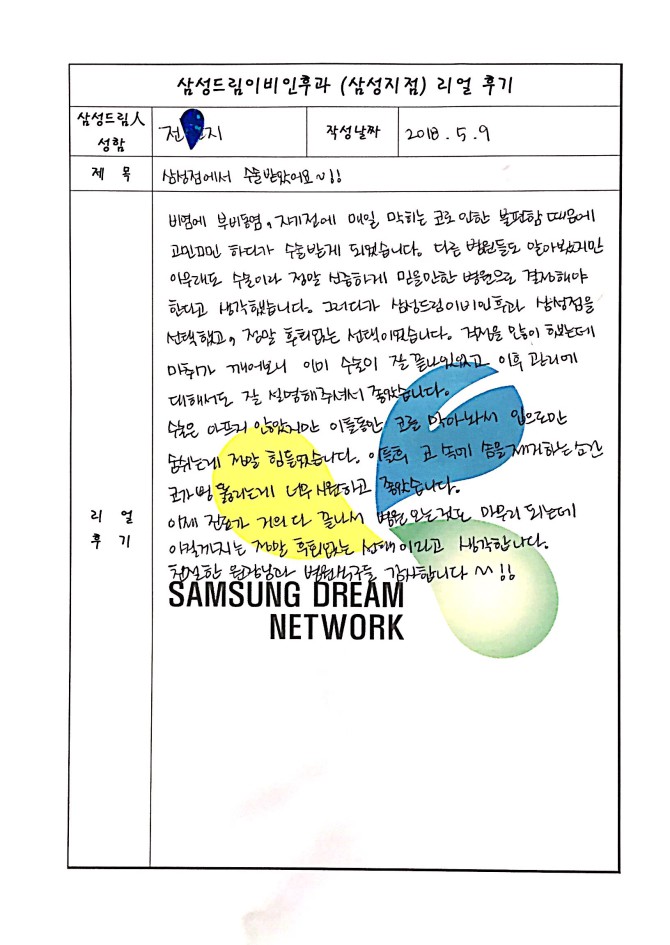 삼성드림이비인후과 (삼성지점) 리얼 후기
삼성드림人 성함
전 지
작성날짜
2018. 5. 9
제 목
삼성점에서 수술받았어요~!!
리 얼 후 기
비염에 부비동염, 자기전에 매일 막히는 코로 인한 불편함 때문에
고민고민 하다가 수술받게 되었습니다. 다른 병원들도 알아봤지만
아무래도 수술이라 정말 신중하게 믿을만한 병원으로 결정해야
한다고 생각했습니다. 그러다가 삼성드림이비인후과 삼성점을
선택했고, 정말 후회없는 선택이었습니다. 걱정을 많이 했는데
마취가 깨어보니 이미 수술이 잘 끝나있었고 이후 관리에
대해서도 잘 설명해주셔서 좋았습니다.
수술은 아프지 않았지만 이틀동안 코를 막아놔서 입으로만
숨쉬는게 정말 힘들었습니다. 이틀뒤 코 속에 솜을 제거하는 순간
코가 뻥 뚫리는게 너무 시원하고 좋았습니다.
이제 진료가 거의 다 끝나서 병원 오는것도 마무리 되는데
아직까지는 정말 후회없는 선택이라고 생각합니다.
친절한 원장님과 병원식구들 감사합니다 ~!!
SAMSUNG DREAM
NETWORK